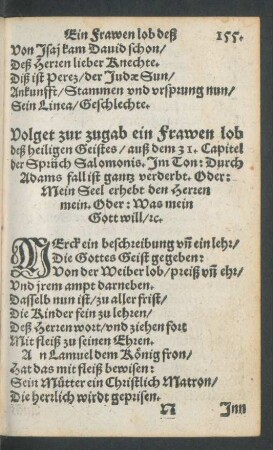 Ein Frawen lob deß 155.
Von Isaj kam Dauid schon/
Deß Herren lieber Knechte.
Diß ist Perez/der Judæ Sun/
Ankunfft/Stammen vnd vrsprung nun/
Sein Linea/Geschlechte.
Volget zur zugab ein Frawen lob
deß heiligen Geistes/auß dem 31. Capitel
der Sprüch Salomonis. Im Ton: Durch
Adams fall ist gantz verderbt. Oder:
Mein Seel erhebt den Herren
mein. Oder: Was mein
Gott will/ꝛc.
MErck ein beschreibung vñ ein lehr/
Die Gottes Geist gegeben:
Von der Weiber lob/preiß vñ ehr/
Vnd jrem ampt darneben.
Dasselb nun ist/zu aller frist/
Die Kinder fein zu lehren/
Deß Herren wort/vnd ziehen fort
Mit fleiß zu seinen Ehren.
An Lamuel dem König fron/
Hat das mit fleiß bewisen:
Sein Mütter ein Christlich Matron/
Die herrlich wirdt geprisen.
N Inn